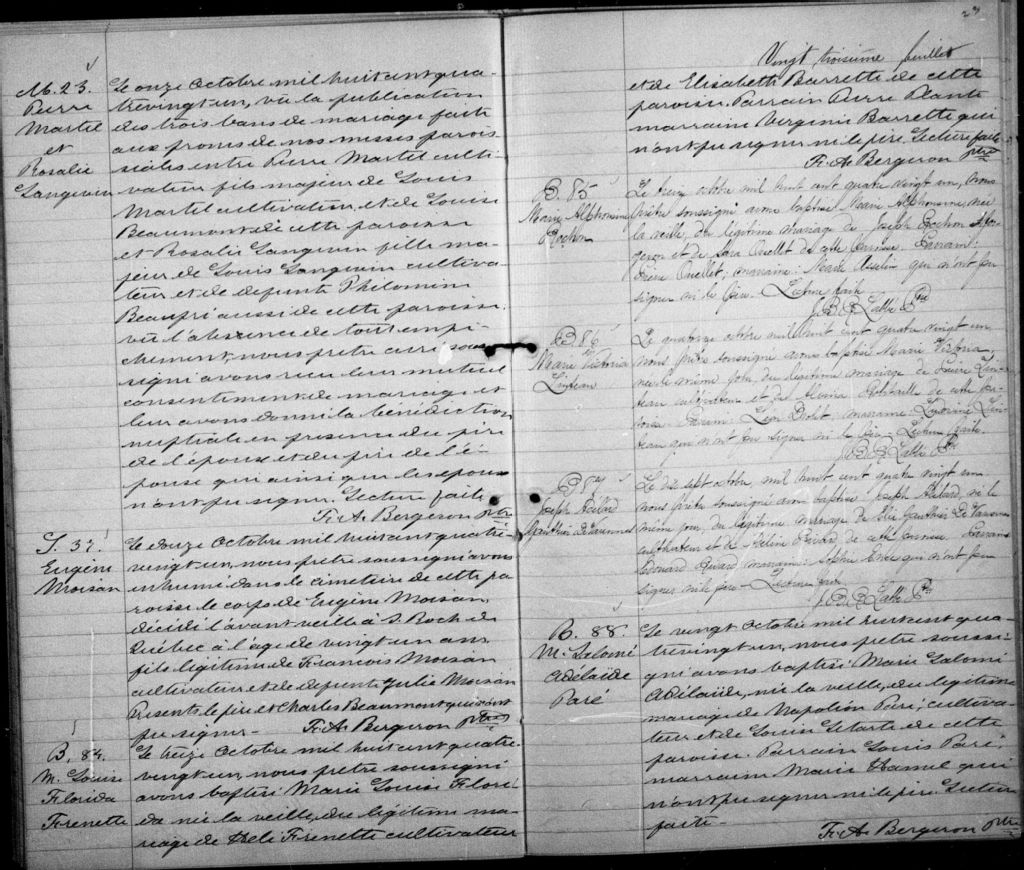 M. 23.
Pierre
Martel
et
Rosalie
Langevin
Le onze Octobre mil huit cent qua-
trevingt un, vu la publication
des trois bans de mariage faite
aux prones de nos messes parois
siales entre Pierre Martel culti-
vateur fils majeur de Louis
Martel cultivateur, et de Louise
Beaumont de cette paroisse
et Rosalie Langevin fille ma-
jeur de Louis Langevin cultiva-
teur et de defunte Philomene
Beaupré aussi de cette paroisse
vu l'absence de tout empê-
chement, nous prêtre curé sous-
signé avons recu leur mutuel
consentement de mariage et
leur avons donné la bénédiction
nuptiale en presence du père
de l'époux et du père de l'é-
pouse qui ainsi que les epoux
n'ont pu signer. Lecture faite
F. A. Bergeron ptre
S. 37.
Eugène
Moisan
Le douze Octobre mil huit cent quatre
vingt un, nous prêtre soussigné avons
inhumé dans le cimetiere de cette pa
roisse le corps de Eugène Moisan
décédé l'avant veille à S. Roch de
Québec à l'âge de vingt un ans
fils légitime de Francois Moisan
cultivateur et de defunte Julie Moisan
Presents le père et Charles Beaumont qui n'ont
pu signer- F. A. Bergeron ptre
B. 84.
M. Louise
Florida
Frenette
Le treize Octobre mil huit cent quatre-
vingt un, nous prêtre soussigné
avons baptisé Marie Louise Flori-
da née la veille, du légitime ma-
riage de Heli Frenette cultivateur
23
Vingt troisième feuillet
et de Elisabeth Barrette de cette
paroisse. Parrain Pierre Plante
marraine Virginie Barrette qui
n'ont pu signer ni le père. Lecture faite
F. A. Bergeron ptre
B. 85
Marie Alphonsine
Rochon
Le treize octobre mil huit cent quatre vingt un, nous
prêtre soussigné avons baptisé Marie Alphonsine, née
la veille, du légitime mariage de Joseph Rochon
et de Ouellet de cette paroisse. Parrain:
Ouellet; marraine: Marie Asselin qui n'ont pu
signer ni le père. Lecture faite.
J. B. B. Ptre
B 86
Marie Victoria
Le quatorze octobre mil huit cent quatre vingt un
nous prêtre soussigné avons baptisé Marie Victoria
née le même jour du légitime mariage de
cultivateur et de de cette pa-
roisse. Parrain: marraine:
qui n'ont pu signer ni le père. Lecture faite.
J. B. B. Ptre
B 87
Joseph
Gauthier
Le dix sept octobre mil huit cent quatre vingt un
nous prêtre soussigné avons baptisé Joseph né le
même jour du légitime mariage de Gauthier
cultivateur et de de cette paroisse. Parrain
Edouard marraine: Sophie qui n'ont pu
signer ni le père. Lecture faite
J. B. B. Ptre
B. 88.
M. Salomé
Adélaïde
Paré
Le vingt Octobre mil huit cent qua-
trevingt un, nous prêtre soussi-
gné avons baptisé Marie Salomé
Adélaïde, née la veille, du légitime
mariage de Napoléon Paré, cultiva-
teur et de Louise Letarte de cette
paroisse. Parrain Louis Paré,
marraine Marie Hamel qui
n'ont pu signer ni le père Lecture
faite
F. A. Bergeron ptre